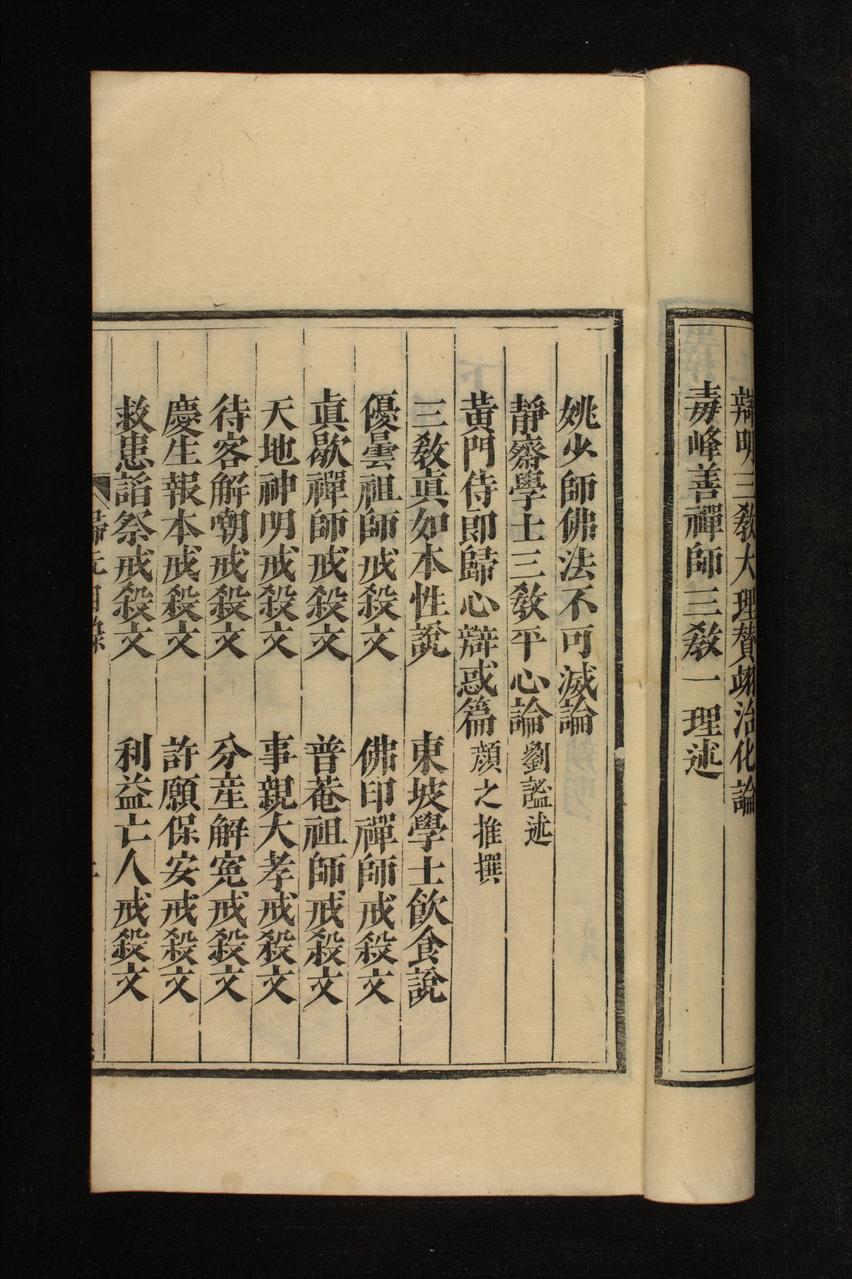 辯明三敎大理贊翊治化論
毒峰善禪師三敎一理述
姚少師佛法不可滅論
靜齋學士三敎平心論 劉謐述
黃門侍郎歸心辯惑篇 顔之推撰
三敎真如本性說 東坡學士飮食說
優曇祖師戒殺文 佛印禪師戒殺文
眞歇禪師戒殺文 普菴祖師戒殺文
天地神明戒殺文 事親大孝戒殺文
待客解嘲戒殺文 分産解寃戒殺文
慶生報本戒殺文 許願保安戒殺文
救患諂祭戒殺文 利益亡人戒殺文
歸元目錄